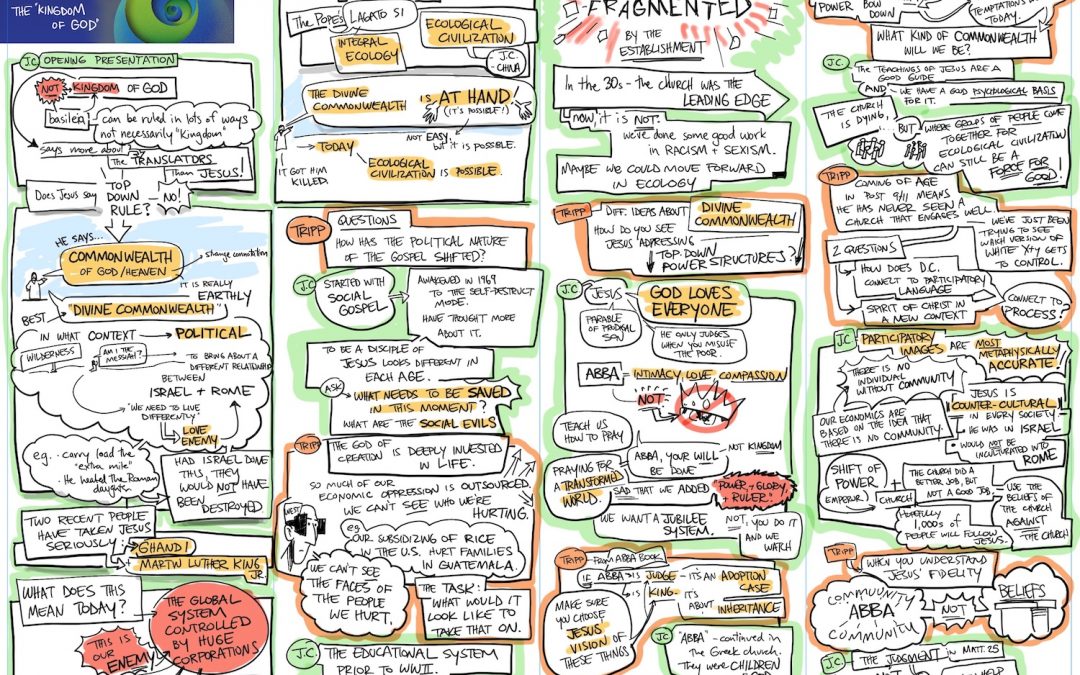 THE "KINGDOM
OF GOD"
J.C. OPENING PRESENTATION
NOT KINGDOM OF GOD
basileia - can be ruled in lots of ways
not necessarily "Kingdom"
says more about
The TRANSLATORS
Than JESUS!
Does Jesus say TOP
DOWN
RULE? NO!
HE SAYS...
COMMONWEALTH
OF GOD/HEAVEN
strange connotation
IT IS REALLY
EARTHLY
BEST
"DIVINE COMMONWEALTH"
IN WHAT CONTEXT → POLITICAL
WILDERNESS
AM I THE
MESSIAH?
TO BRING ABOUT A
DIFFERENT RELATIONSHIP
BETWEEN
ISRAEL + ROME
"WE NEED TO LIVE
DIFFERENTLY"
LOVE
ENEMY
eg. - carry load the
"extra mile"
· He healed the Roman
daughter.
HAD ISRAEL DONE
THIS, THEY
WOULD NOT HAVE
BEEN
DESTROYED
TWO RECENT PEOPLE
HAVE TAKEN JESUS
SERIOUSLY:
GHANDI
+ MARTIN LUTHER KING
JR.
WHAT DOES THIS
MEAN TODAY?
THIS IS
OUR
ENEMY
THE GLOBAL
SYSTEM
CONTROLLED
BY HUGE
CORPORATIONS
The POPE'S LAGATO SI
INTEGRAL
ECOLOGY
ECOLOGICAL
CIVILIZATION
- J.C.
- CHINA
THE DIVINE
COMMONWEALTH
IS AT HAND!
(IT'S POSSIBLE!)
NOT EASY
but it is POSSIBLE.
IT GOT HIM
KILLED.
TODAY
ECOLOGICAL
CIVILIZATION IS POSSIBLE.
TRIPP
QUESTIONS
HOW HAS THE POLITICAL NATURE
OF THE GOSPEL SHIFTED?
J.C.
STARTED WITH
SOCIAL
GOSPEL
AWAKENED IN 1969
TO THE SELF-DESTRUCT
MODE.
HAVE THOUGHT MORE
ABOUT IT.
TO BE A DISCIPLE OF
JESUS LOOKS DIFFERENT IN
EACH AGE.
ASK
WHAT NEEDS TO BE SAVED
IN THIS MOMENT?
WHAT ARE THE SOCIAL EVILS
TRIPP
THE GOD OF
CREATION IS DEEPLY INVESTED
IN LIFE.
SO MUCH OF OUR
ECONOMIC OPPRESSION IS OUTSOURCED.
WE CAN'T SEE WHO WE'RE
HURTING.
WEST
eg.
OUR SUBSIDIZING OF RICE
IN THE U.S. HURT FAMILIES
IN GUATEMALA.
WE CAN'T SEE
THE FACES OF
THE PEOPLE
WE HURT.
THE TASK:
WHAT WOULD IT
LOOK LIKE TO
TAKE THAT ON.
J.C.
THE EDUCATIONAL SYSTEM
PRIOR TO WWII.
FRAGMENTED
BY THE
ESTABLISHMENT
In the 30s - the CHURCH WAS THE
LEADING EDGE
NOW, IT IS NOT.
we've done some good work
in RACISM + SEXISM.
MAYBE WE COULD MOVE FORWARD
IN ECOLOGY
TRIPP
DIFF. IDEAS ABOUT DIVINE
COMMONWEALTH
HOW DO YOU SEE
JESUS ADDRESSING
TOP-DOWN
POWER STRUCTURES?
J.C.
JESUS
PARABLE
OF PRODIGAL
SON
GOD LOVES
EVERYONE
HE ONLY JUDGES
WHEN YOU MISUSE
THE POOR.
ABBA = INTIMACY, LOVE, COMPASSION
NOT
TEACH US
HOW TO PRAY
ABBA, YOUR WILL
BE DONE
NOT KINGDOM
PRAYING FOR
A TRANSFORMED
WORLD.
SAD THAT WE ADDED
"POWER + GLORY
+ RULER."
WE WANT A JUBILEE
SYSTEM.
NOT, YOU DO IT
AND WE
WATCH
TRIPP
From ABBA BOOK
IF ABBA IS JUDGE - ITS AN ADOPTION
CASE
IS KING - IT'S
ABOUT INHERITANCE
MAKE SURE
YOU CHOOSE
JESUS'
VISION OF
THESE THINGS
J.C.
"ABBA" - continued in
the Greek church.
They were CHILDREN
POWER BOW
DOWN
TEMPTATIONS
TODAY.
WHAT KIND OF COMMONWEALTH
WILL WE BE?
J.C.
The TEACHINGS OF JESUS ARE A
GOOD GUIDE
AND - WE HAVE A GOOD PSYCOLOGICAL BASIS
FOR IT.
THE CHURCH
IS DYING,
...BUT
WHERE GROUPS OF PEOPLE COME
TOGETHER FOR
ECOLOGICAL CIVILIZATION
CAN STILL BE A
FORCE FOR
GOOD!
TRIPP
COMING OF AGE
IN POST 9/11 MEANS
HE HAS NEVER SEEN A
CHURCH THAT ENGAGES WELL.
WE'VE JUST BEEN
TRYING TO SEE
WHICH VERSION OF
WHITE Xty GETS
TO CONTROL.
2 QUESTIONS
HOW DOES D.C.
CONNECT TO PARTICIPATORY
LANGUAGE
SPIRIT OF CHRIST IN
A NEW CONTEXT
CONNECT TO
PROCESS?
J.C.
PARTICIPATORY
IMAGES ARE MOST
METAPHYSICALLY
ACCURATE!
THERE IS NO
INDIVIDUAL
WITHOUT COMMUNITY
OUR ECONOMICS ARE
BASED ON THE IDEA THAT
THERE IS NO COMMUNITY.
JESUS IS
COUNTER-CULTURAL
IN EVERY SOCIETY
HE WAS IN ISRAEL
· WOULD NOT BE
INCULTURATED INTO
ROME
SHIFT OF
POWER
EMPEROR
CHURCH
THE CHURCH DID A
BETTER JOB, BUT
NOT A GOOD JOB.
HOPEFULLY
1,000s OF
PEOPLE WILL FOLLOW
JESUS.
USE THE
BELIEFS OF
THE CHURCH
AGAINST
THE CHURCH
TRIPP
WHEN YOU UNDERSTAND
JESUS' FIDELITY
COMMUNITY
ABBA
COMMUNITY
NOT
BELIEFS
J.C.
THE JUDGMENT in MATT. 25
HELP